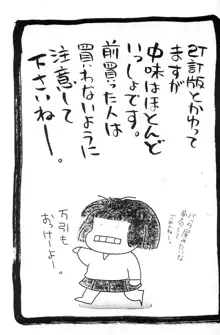 改訂版とかゆって
ますが
中味はほとんど
いっしょです。
前買った人は
買わないように
注意して
下さいねー。
万引も
おっけーよー。